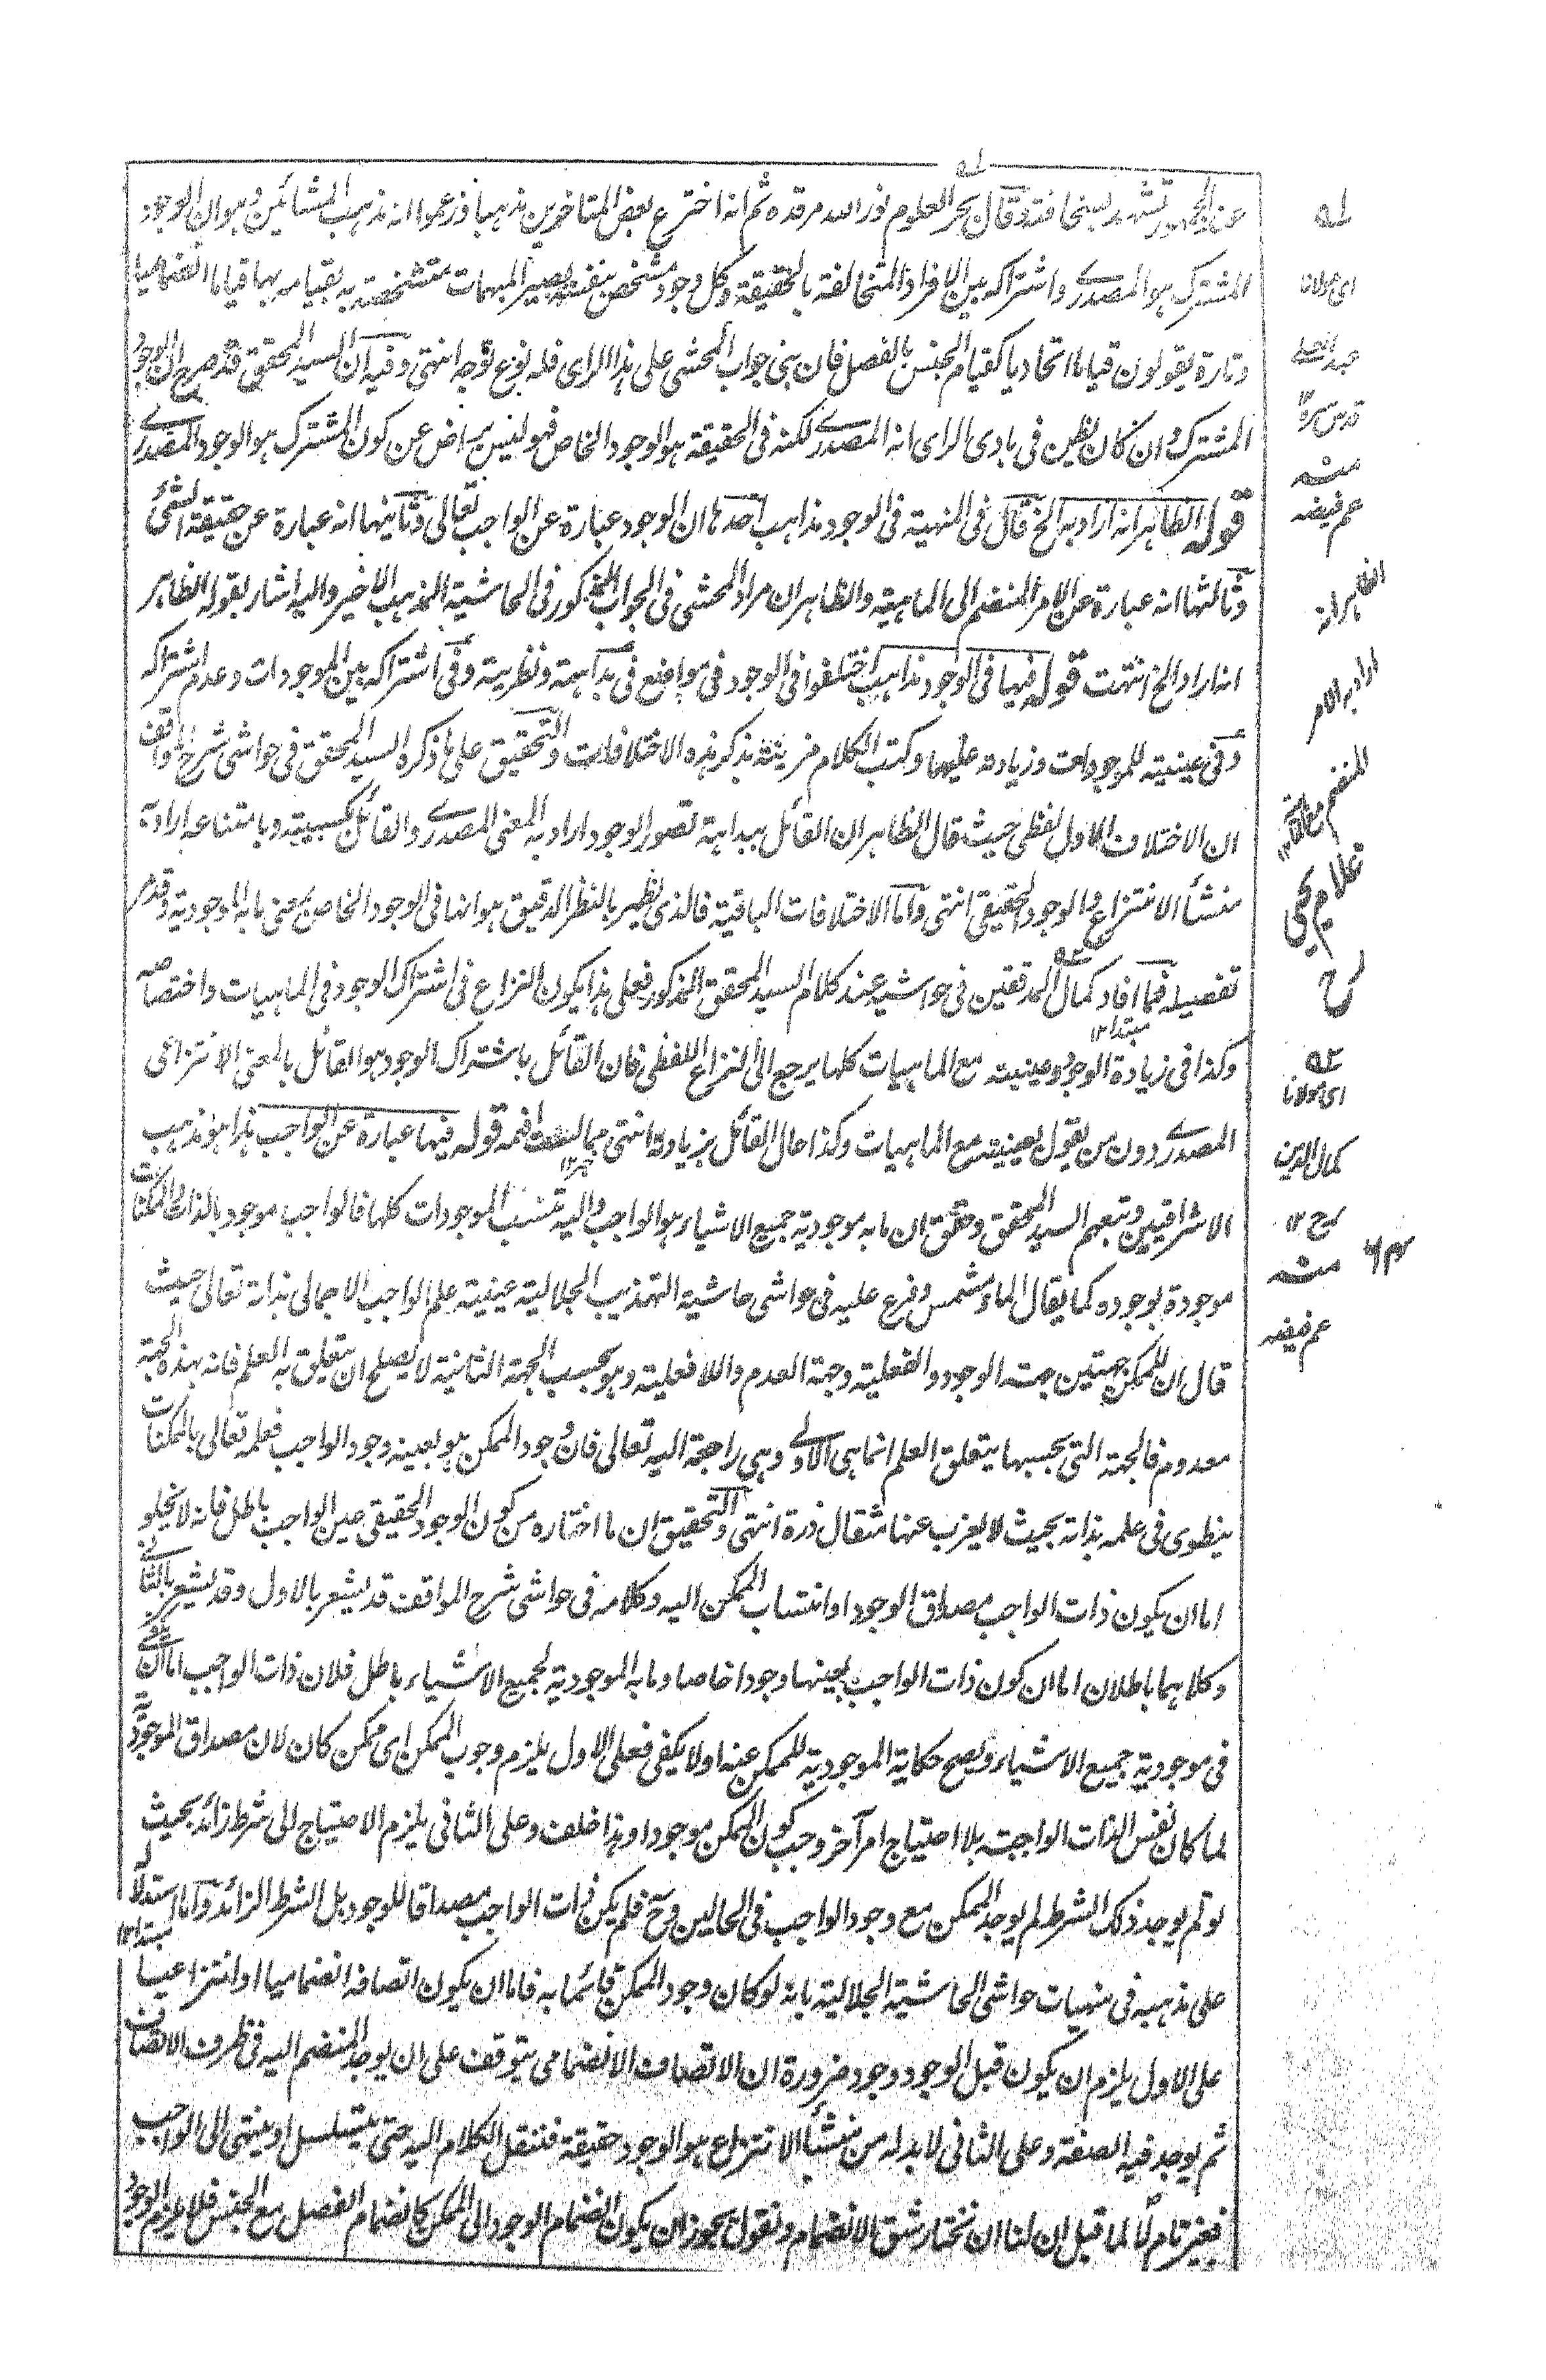 عن الجمهور تشهد بسخافته وقال بحر العلوم نور الله مرقده ثم انه اخترع بعض المتاخرين مذهبا وزعموا انه مذهب المشائين وهو ان الوجود
المشترك هو المصدرے واشتراكه بين الافراد المتخالفة بالحقيقة وكل وجود متشخص بنفسه يصير المهيات متشخصة به بقيامه بها قياما انضماميا
وتارة يقولون قياما اتحاديا كقيام الجنس بالفصل فان بنى جواب المحشى على هذا الراى فله نوع توجه انتهى وفيه ان السيد المحقق قد صرح ان الوجود
المشترك وان كان يظن فى بادى الراى انه المصدرے لكنه فى الحقيقة هو الوجود الخاص فهو ليس براض عن كون المشترك هو الوجود المصدرے
قوله الظاهر انه اراد به الخ قال فى المنهية فى الوجود مذاهب احدها ان الوجود عبارة عن الواجب تعالى وثانيها انه عبارة عن حقيقة الشئ
وثالثها انه عبارة عن الامر المنضم الى الماهية والظاهر ان مراد المحشى فى الجواب المذكور فى الحاشية المذهب الاخير واليه اشار بقوله الظاهر
انه اراد الخ انتهت قوله فيها فى الوجود مذاهب اختلفوا فى الوجود فى مواضع فى بداهته ونظريته وفى اشتراكه بين الموجودات وعدم اشتراكه
وفى عينيته للموجودات وزيادته عليها وكتب الكلام مزينة بذكر هذه الاختلافات والتحقيق على ما ذكره السيد المحقق فى حواشى شرح المواقف
ان الاختلاف الاول لفظى حيث قال الظاهر ان القائل ببداهة تصور الوجود اراد به المعنى المصدرے والقائل بكسبيته وبامتناعه اراد به
منشأ الانتزاع والوجود الحقيقى انتهى واما الاختلافات الباقية فالذى يظهر بالنظر الدقيق هو انها فى الوجود الخاص بمعنى ما به الموجودية وقد مر
تفصيله فما افاد كمال المدققين فى حواشيه عند كلام السيد المحقق المذكور فعلى هذا يكون النزاع فى اشتراك الوجود فى الماهيات واختصاصه
وكذا فى زيادة الوجود وعينيته مع الماهيات كلها يرجع الى النزاع اللفظى فان القائل باشتراك الوجود هو القائل بالمعنى الانتزاعى
المصدرے دون من يقول بعينيته مع الماهيات وكذا حال القائل بزيادته انتهى مما لست افهمه قوله فيها عبارة عن الواجب هذا هو مذهب
الاشراقيين وتبعهم السيد المحقق وحقق ان ما به موجودية جميع الاشياء هو الواجب واليه تنتسب الموجودات كلها فالواجب موجود بالذات والممكنات
موجودة بوجوده كما يقال الماء مشمس وفرع عليه فى حواشى حاشية التهذيب الجلالية عينية علم الواجب الاجمالى بذاته تعالى حيث
قال ان للممكن جهتين جهة الوجود والفعلية وجهة العدم واللا فعلية وهو بحسب الجهة الثانية لا يصلح ان يتعلق به العلم فانه بهذه الجهة
معدوم فالجهة التى بحسبها يتعلق العلم انما هى الاولے وهى راجعة اليه تعالى فان وجود الممكن هو بعينه وجود الواجب فعلمه تعالى بالممكنات
ينطوى فى علمه بذاته بحيث لا يعزب عنها مثقال ذرة انتهى والتحقيق ان ما اختاره من كون الوجود الحقيقى عين الواجب باطل فانه لا يخلو
اما ان يكون ذات الواجب مصداق الوجود او انتساب الممكن اليه وكلامه فى حواشى شرح المواقف قد يشعر بالاول وقد يشعر بالثانے
وكلاهما باطلان اما ان كون ذات الواجب بعينها وجودا خاصا وما به الموجودية لجميع الاشياء باطل فلان ذات الواجب اما ان يكفے
فى موجودية جميع الاشياء ويصح حكاية الموجودية للممكن عنه اولا يكفى فعلى الاول يلزم وجوب الممكن اى ممكن كان لان مصداق الموجودية
لما كان نفس الذات الواجبة بلا احتياج امر آخر وجب كون الممكن موجودا وهذا خلف وعلى الثانى يلزم الاحتياج الى شرط زائد بحيث
لو لم يوجد ذلك الشرط لم يوجد الممكن مع وجود الواجب فى الحالين وح فلم يكن ذات الواجب مصداقا للوجود بل الشرط الزائد واما استدلاله
على مذهبه فى منهيات حواشى الحاشية الجلالية بانه لو كان وجود الممكن قائما به فاما ان يكون اتصافه انضماميا او انتزاعيا
على الاول يلزم ان يكون قبل الوجود وجود ضرورة ان الاتصاف الانضمامى يتوقف على ان يوجد المنضم اليه فى ظرف الاتصاف
ثم يوجد فيه الصفة وعلى الثانى لا بد له من منشأ الانتزاع هو الوجود حقيقة فننقل الكلام اليه حتى يتسلسل او ينتهى الى الواجب
فغير تام لا لما قيل ان لنا ان نختار شق الانضمام ونقول يجوز ان يكون انضمام الوجود الى الممكن كانضمام الفصل مع الجنس فلا يلزم الوجود
لہ
اى مولانا
عبد العلى
قدس سره
منه
عم فيضه
الظاهر انه
اراد به الامر
المنضم مع
غلام يحيى
رح
اى مولانا
كمال الدين
رح ۱۲
منه
عم فيضه